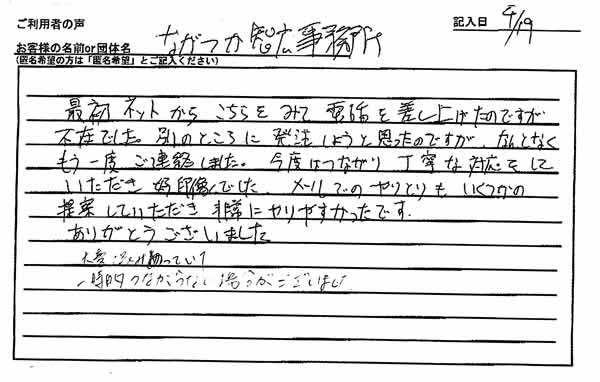 ご利用者の声
記入日 4/19
お客様の名前or団体名 ながつか智広事務所
(匿名希望の方は「匿名希望」とご記入ください)
最初ネットからこちらをみて電話を差し上げたのですが
不在でした。別のところに発注しようと思ったのですが、なんとなく
もう一度ご連絡しました。今度はつながり丁寧な対応をして
いただき好印象でした。メールでのやりとりもいくつかの
提案していただき非常にやりやすかったです。
ありがとうございました
大変
一時的つながらない場合がございました